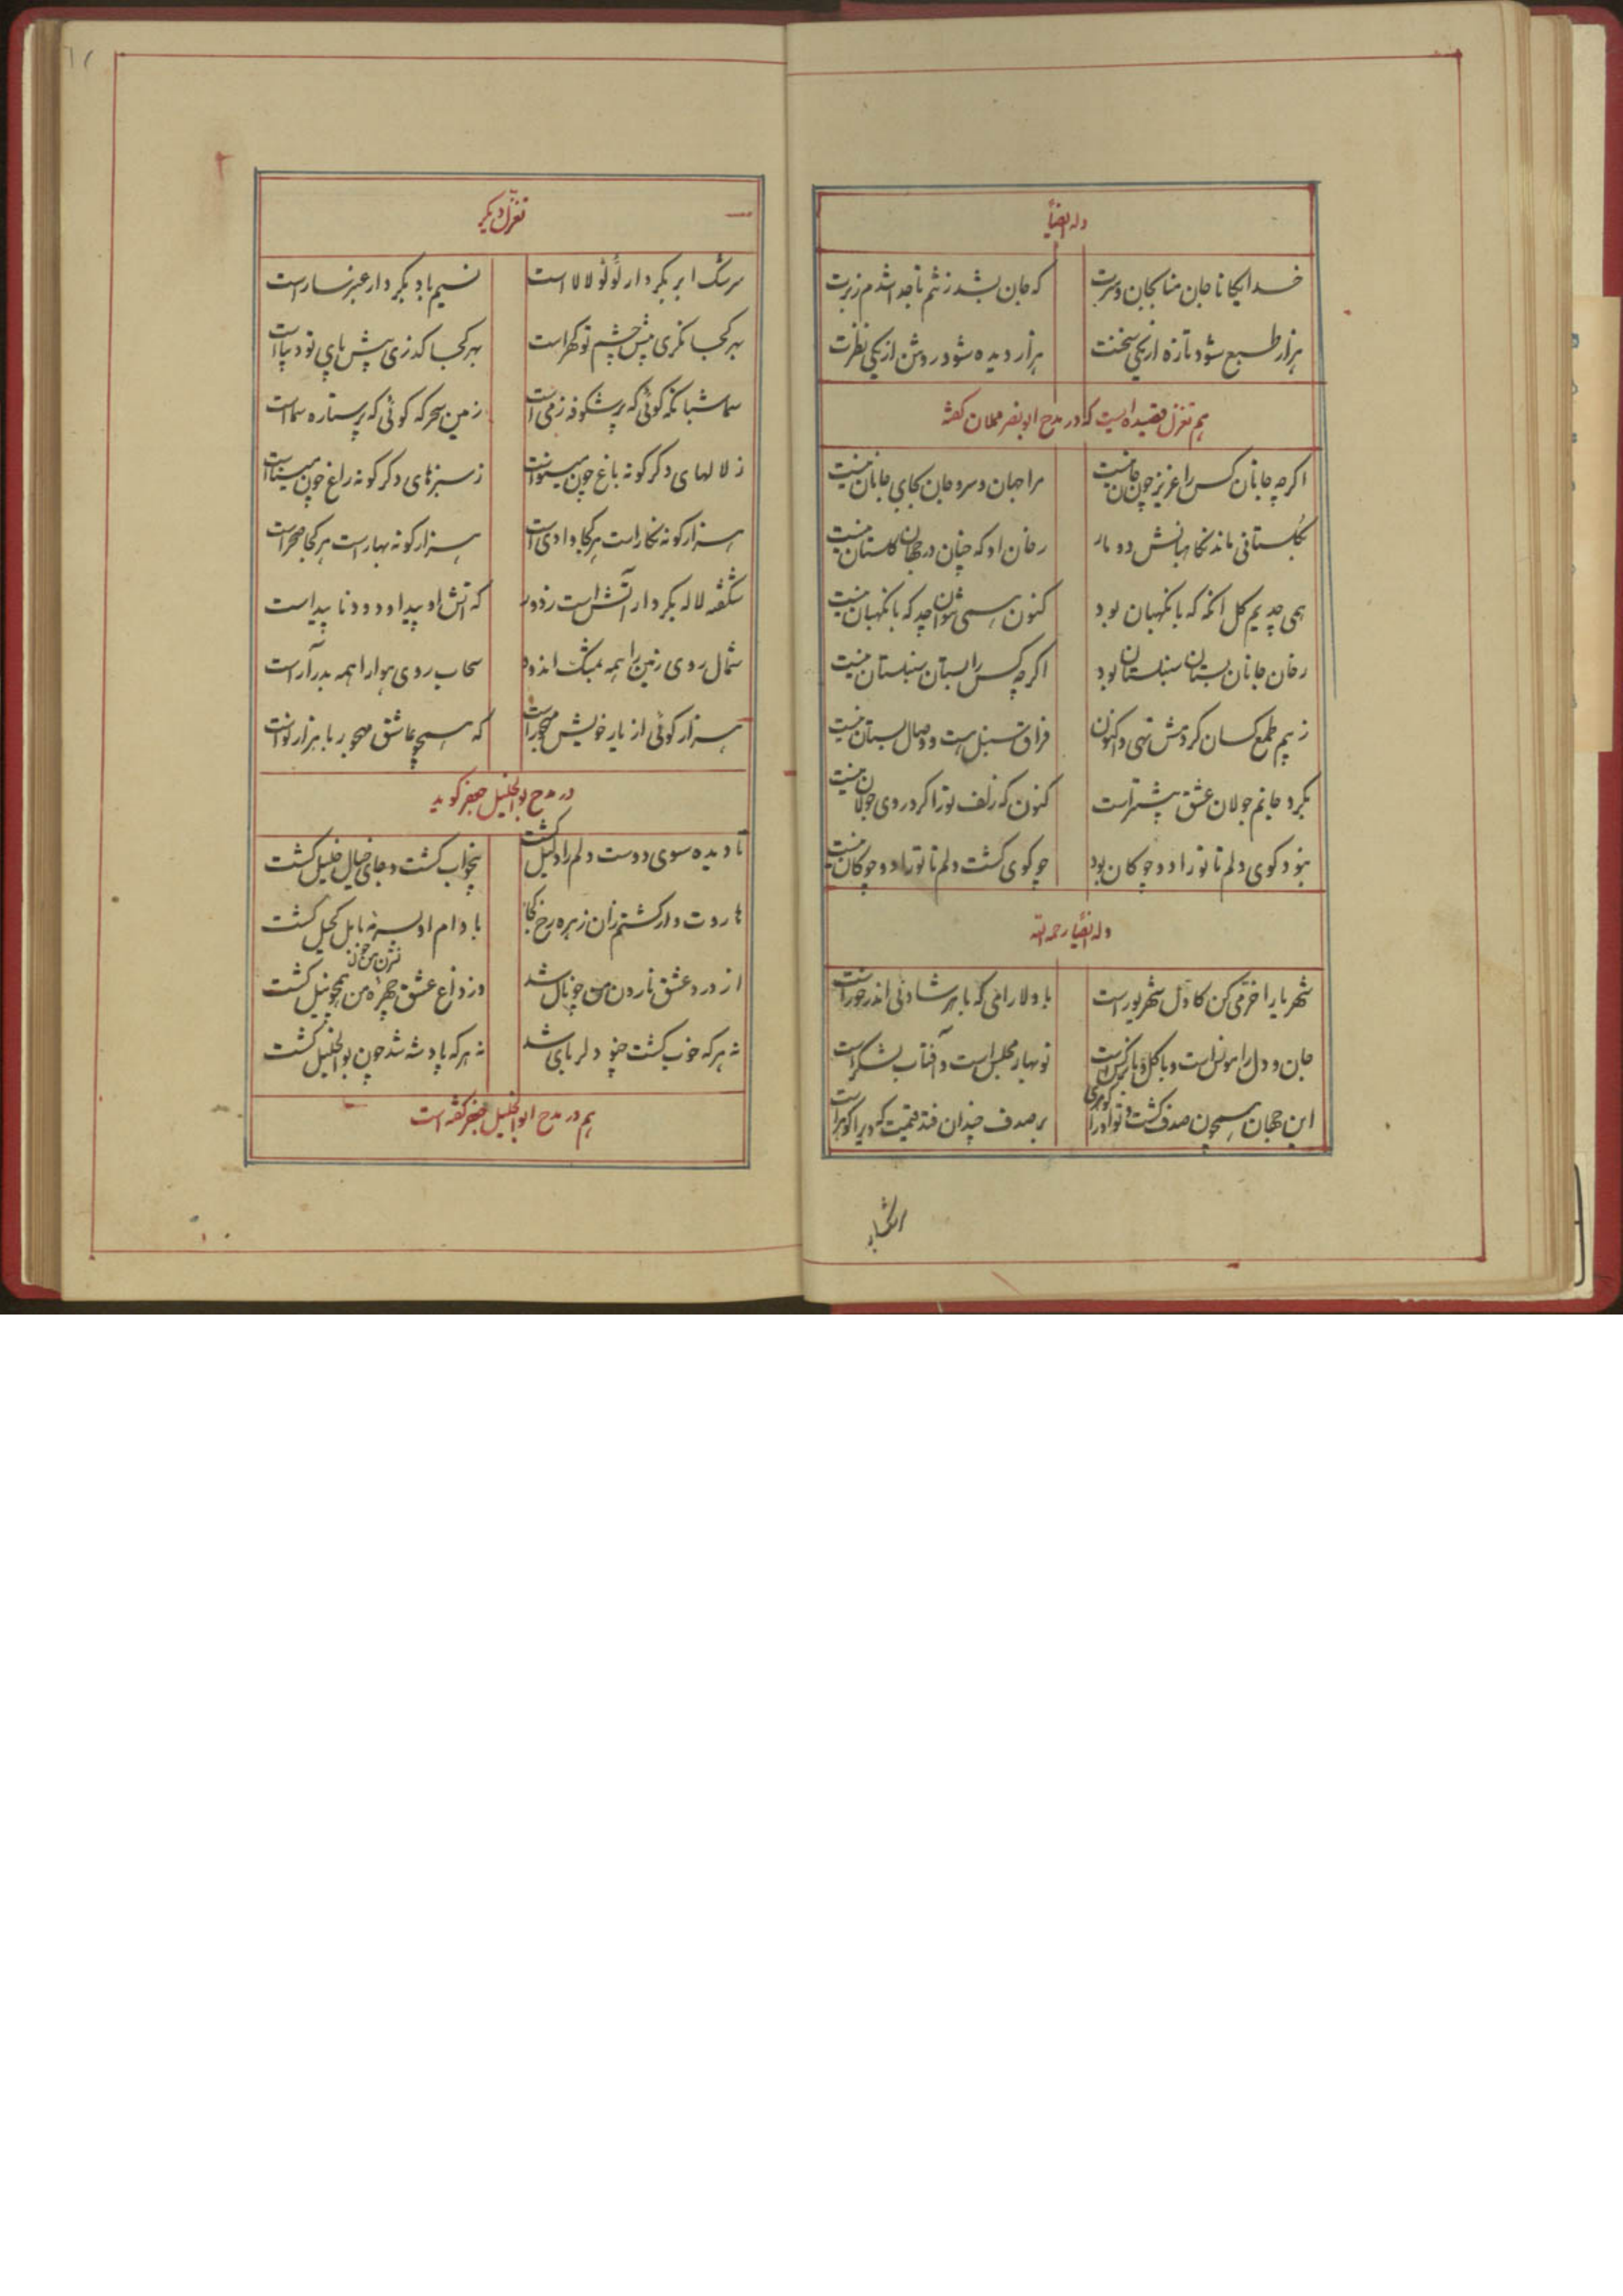 وله ایضاً
خدایگانا جان منا بجان و سرت که جان بشد ز تنم تا جدا شدم ز برت
هزار طبع شود تازه از یکی سخنت هزار دیده شود روشن از یکی نظرت
هم تغزل قصیده ایست که در مدح ابونصر مملان گفته
اگرچه جانان کس را عزیز چون جان نیست مرا جهان و سر و جان بجای جانان نیست
گلستانی ماند نگاهبانش دو مار رخان او که چنان در جهان گلستان نیست
همی چدیم گل آنگه که با نگهبان بود کنون همی نتوان چد که با نگهبان نیست
رخان جانان بستان سنبلستان بود اگرچه کس را بستان سنبلستان نیست
ز بیم طمع کسان کردمش تهی و اکنون فراق سنبل هست و وصال بستان نیست
بگرد جانم جولان عشق بیشتر است کنون که زلف تو را گرد روی جولان نیست
نبود گوی دلم تا تو را دو چوگان بود چو گوی گشت دلم تا تو را دو چوگان نیست
وله ایضاً رحمه الله
شهریارا خرمی کن کاول شهریور است با دلارامی که با هر شادئی اندر خور است
جان و دل را مونس است و با گل و با نرگس است نوبهار مجلس است و آفتاب لشکر است
این جهان همچون صدف گشت و تو او را گوهری بر صدف چندان فتد قیمت که دیرا گوهر است
تغزل دیگر
سرشک ابر بکردار لؤلؤ لالا است نسیم باد بکردار عنبر ساراست
بهر کجا نگری پیش چشم تو گهر است بهر کجا گذری پیش پای تو دیبا است
سما شبانگه گوئی که پر شکوفه زمی است زمین سحرگه گوئی که پر ستاره سما است
ز لالهای دگرگونه باغ چون مینو است ز سبزهای دگرگونه راغ چون میناست
هزار گونه نگار است هر کجا وادی است هزار گونه بهار است هر کجا صحراست
شگفته لاله بکردار آتش است ز دور که آتش او پیدا و دود نا پیداست
شمال روی زمین را همه بمشک اندود سحاب روی هوا را همه بدر آراست
هزار گوئی از یار خویش مهجور است که همچو عاشق مهجور با هزار نواست
در مدح بوالخلیل جعفر گوید
تا دیده سوی دوست دلم را دلیل گشت بیخواب گشت و جای خیال خلیل گشت
هاروت وار گشتم زان زهره رخ کجا بادام او بسرمهٔ بابل کحیل گشت
از درد عشق نارون من چو نال شد وز داغ عشق چهرهٔ من همچو نیل گشت
نسترن من خون
نه هر که خوب گشت چنو دلربای شد نه هر که پادشه شد چون بوالخلیل گشت
هم در مدح ابوالخلیل جعفر گفته است